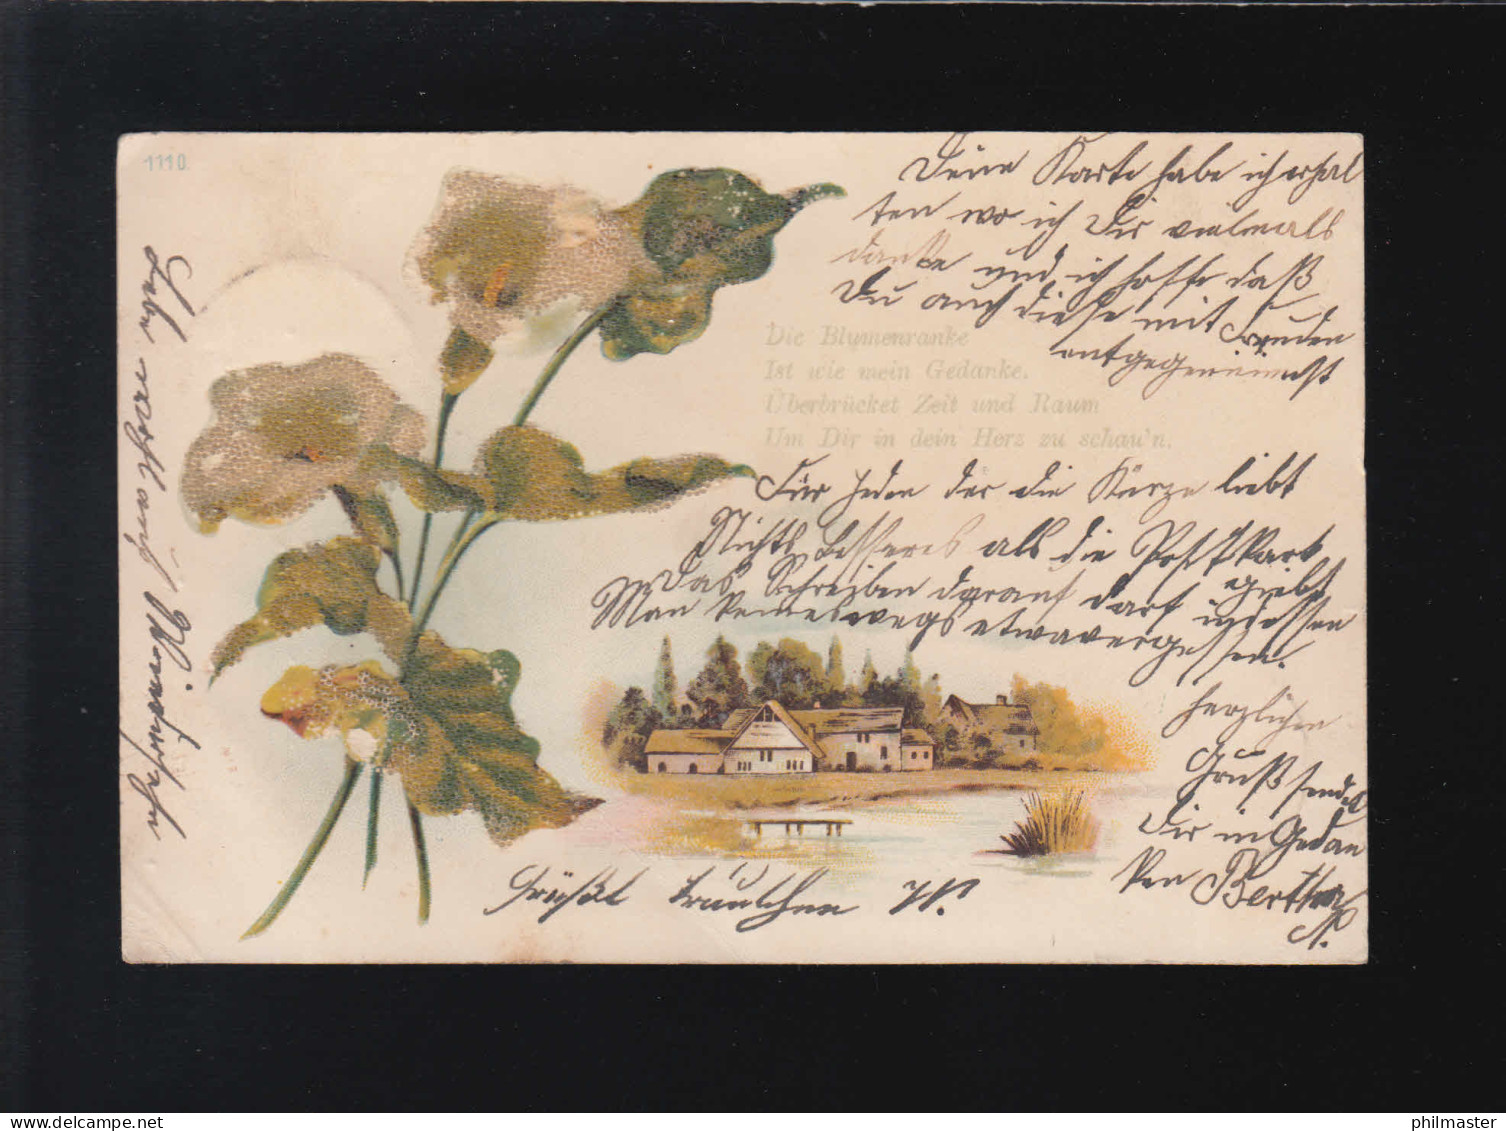 1110
Deine Karte habe ich erhal
ten wo ich Dir vielmals
danke und ich hoffe daß
Du auch diese mit Freuden
entgegennimmst
Die Blumenranke
Ist wie mein Gedanke.
Überbrücket Zeit und Raum
Um Dir in dein Herz zu schau'n.
Für Jeden der die Kürze liebt
Nichts besseres als die Postkart
giebt
Das Schreiben darauf darf indessen
Man keineswegs etwa vergessen.
herzlichen
Gruß sendet
Dir in Gedan
ken Bertha
N.
Grüßt
Lebe wohl auf
Wiedersehn
philmaster